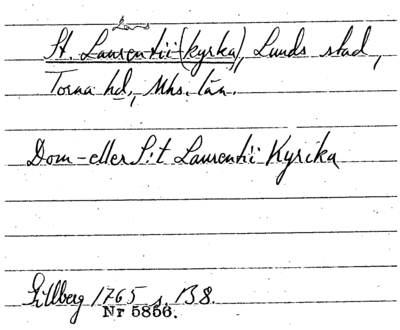 St. Laurentii (kyrka), Lunds stad,
Torna hd, Mhs. län.
Dom- eller S:t Laurentii Kyrika
Gillberg 1765 s. 138.
Nr 5856.